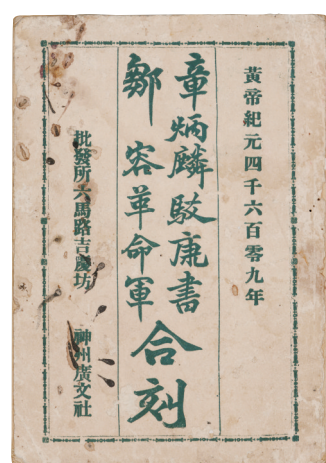 黃帝紀元四千六百零九年
章炳麟駁康書
鄒容革命軍
合刻
批發所六馬路吉慶坊 神州廣文社